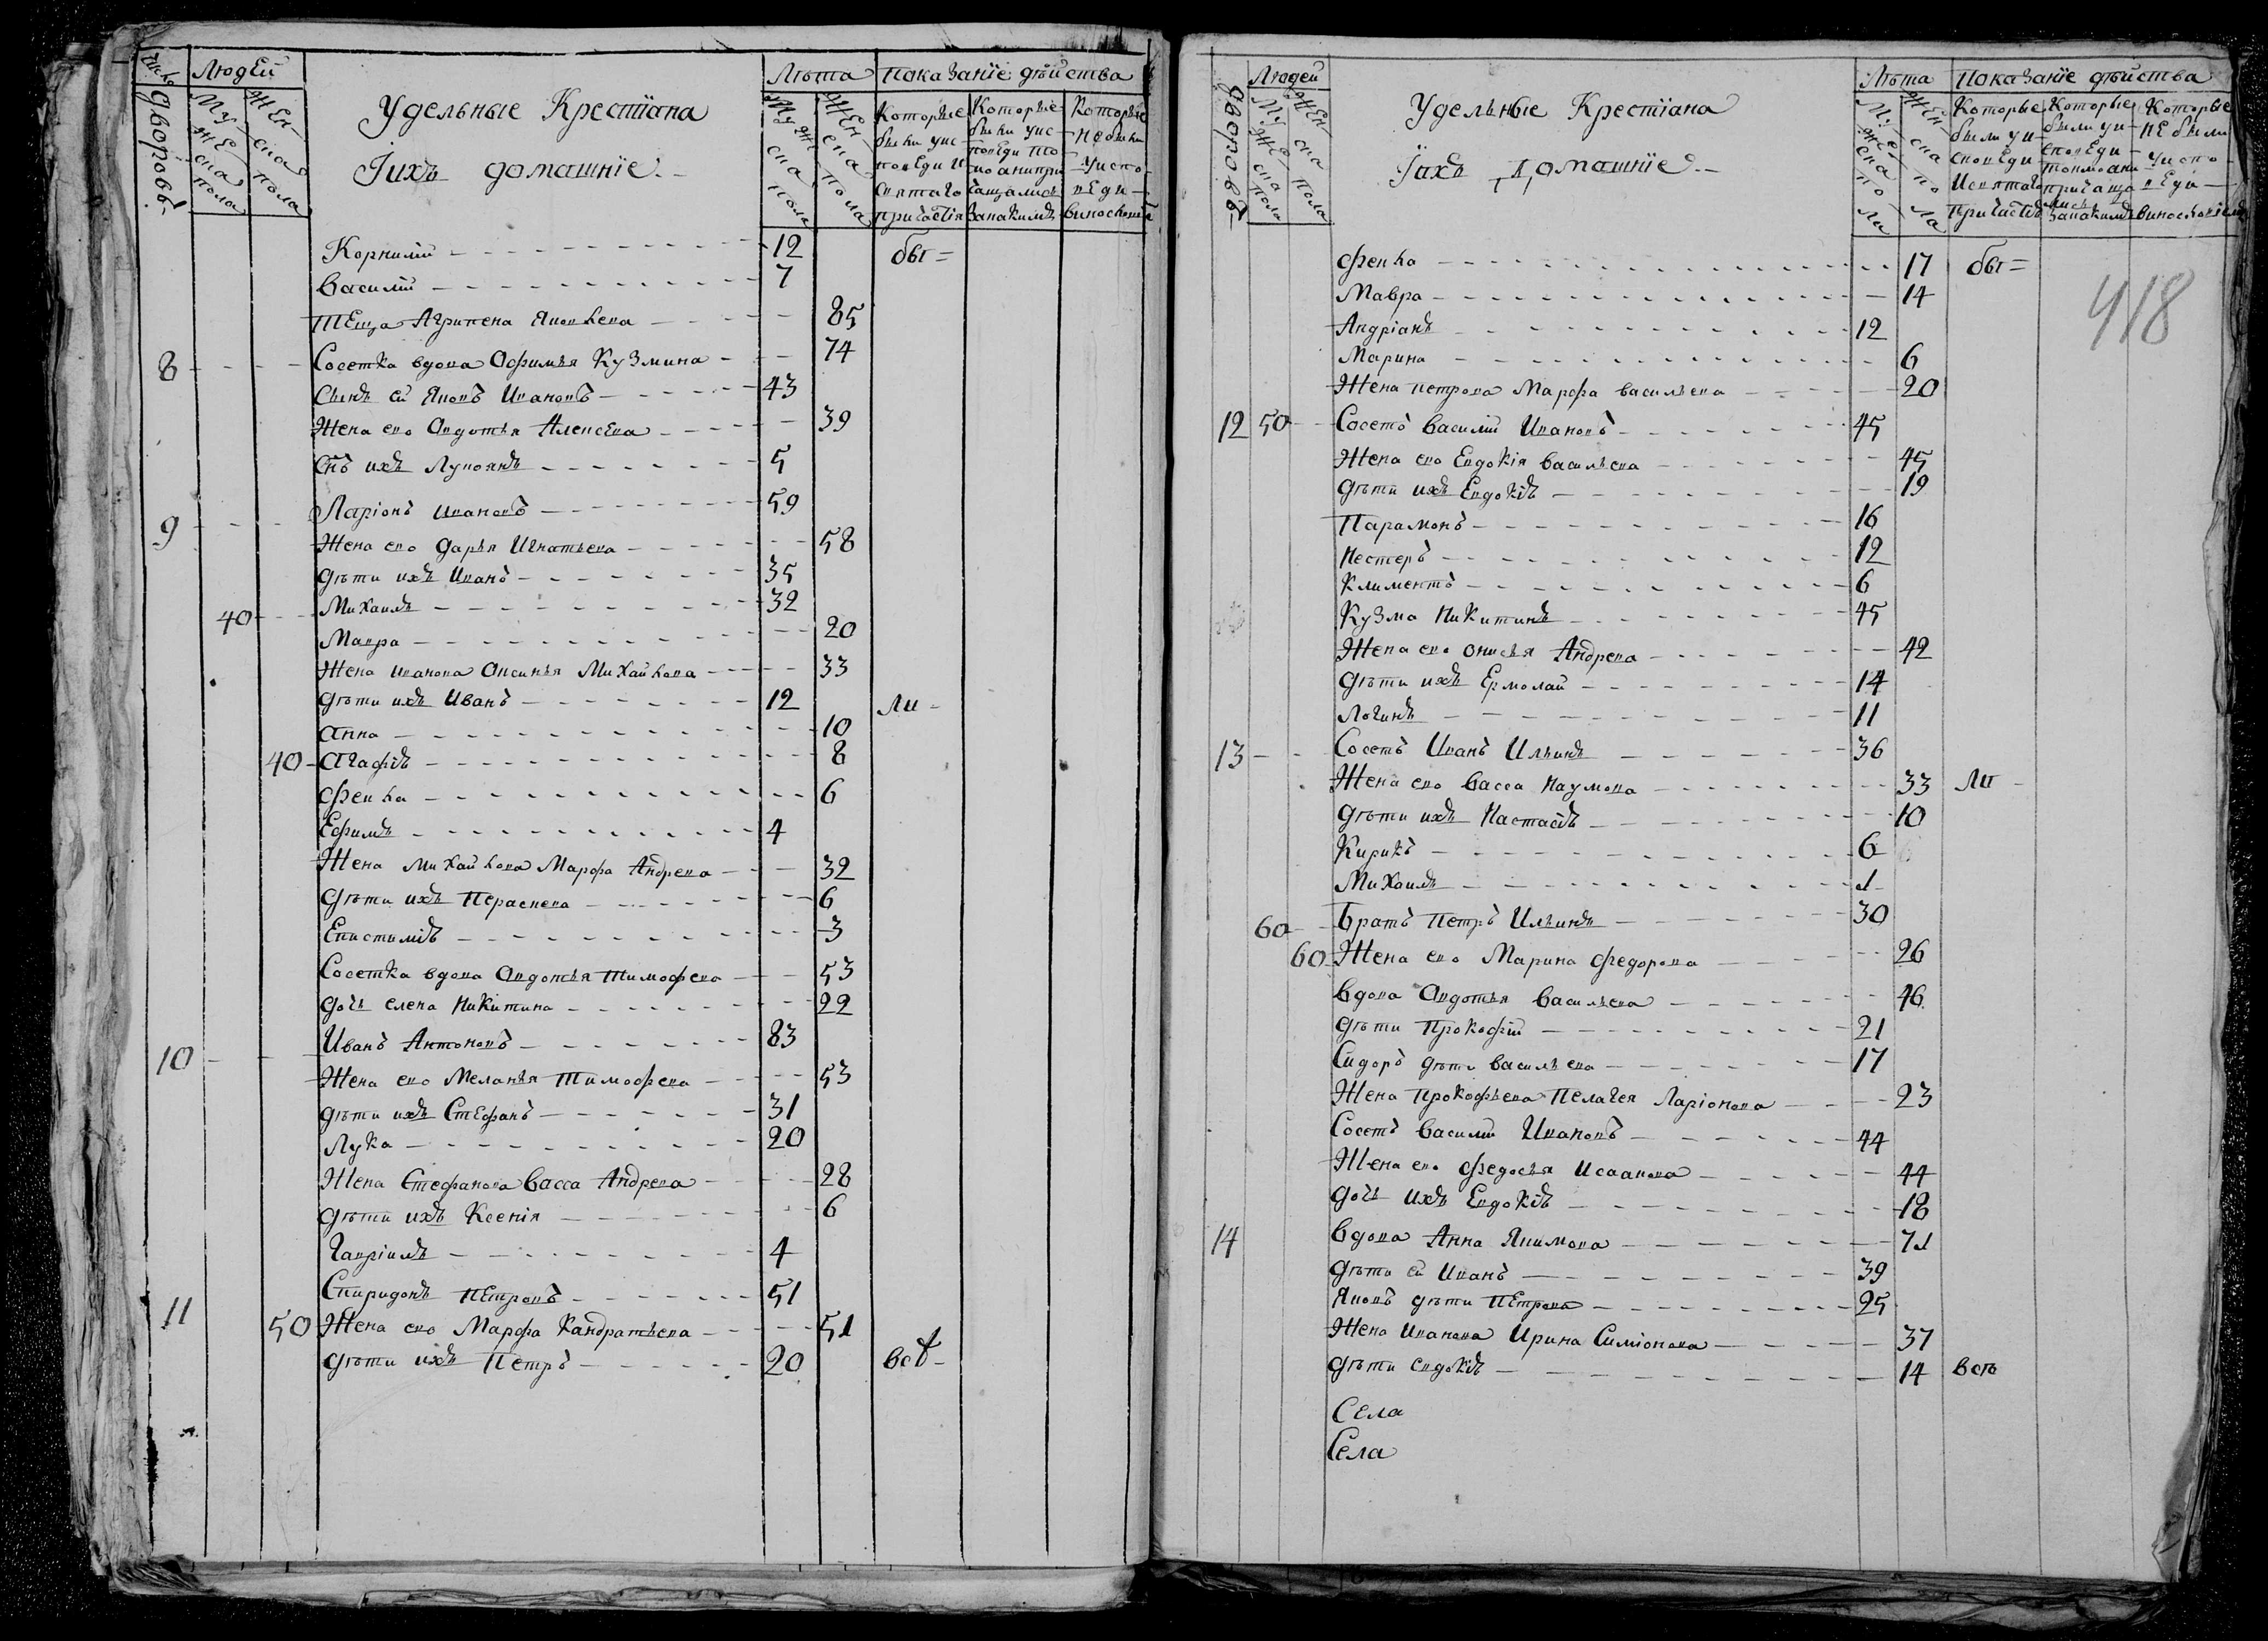 число дворовъ
Людей
Мужеска пола
Женска пола
Удельные Крестїана
Їихъ домашнїе
Лѣта
Мужеска пола
Женска пола
показанїе дѣйства
Которые были уисповеди и святаго причастїя
Которые были уисповеди токмо анипричащались занакимъ
Которые небыли уисповеди
Корнилий 12 бы=
василий 7
теща Агрипена Яковлева 85
8 Сосетка вдова Офимья Кузмина 74
Сынъ ей Яковъ Ивановъ 43
Жена ево Овдотья Алексева 39
Снъ ихъ Лукоянъ 5
9 Ларіонъ ивановъ 59
Жена ево дарья Игнатьева 58
дѣти ихъ Иванъ 35
40 Михаилъ 32
Мавра 20
Жена иванова Оксинья Михайлова 33
дѣти ихъ Иванъ 12 ли-
анна 10
40 агафѣѣ 8
фекла 6
Ефимъ 4
Жена михайлова Марфа Андрева 32
дѣти ихъ Пераскева 6
Епистимѣѣ 3
Сосетка вдова Овдотья тимофева 53
дочь елена Никитина 22
10 Иванъ Антоновъ 83
Жена ево Меланья Тимофева 53
дѣти ихъ Стефанъ 31
Лука 20
Жена Стефанова Васса Андрева 28
дѣти ихъ Ксенія 6
Гавріилъ 4
11 Спиридонъ петровъ 51
50 Жена ево Марфа Кандратьева 51
дѣти ихъ Петръ 20 всѣ-
дворовъ
Людей
Мужеска пола
Женска пола
Удельные Крестїана
Їихъ домашнїе
Лѣта
Мужеска пола
Женска пола
показанїе дѣйства
Которые были уисповеди и святаго причастѣѣ
Которые были уисповеди токмо анипричащались занакимъ
Которые не были уисповеди
418
фекла 17 бы=
Мавра 14
Андріанъ 12
Марина 6
Жена петрова Марфа васильева 20
12 50 Сосетъ василий Ивановъ 45
Жена ево Евдокія васильева 45
дѣти ихъ Евдокѣѣ 19
Парамонъ 16
Нестеръ 12
Климентъ 6
Кузма Никитинъ 45
Жена ево онисья Андрева 42
дѣти ихъ Ермолай 14
Логинъ 11
13 Сосетъ Иванъ Ильинъ 36
Жена ево васса Наумова 33 ли-
дѣти ихъ Настасѣѣ 10
Кирикъ 6
Михаилъ 1
60 братъ петръ Ильинъ 30
60 Жена ево Марина федорова 26
вдова Овдотья васильева 46
дѣти Прокофій 21
Сидоръ дѣти васильева 17
Жена прокофьева Пелагея Ларіонова 23
Сосетъ василий Ивановъ 44
Жена ево федосья Исаакова 44
дочь ихъ Евдокѣѣ 18
14 вдова Анна Якимова 71
дѣти ей Иванъ 39
Яковъ дѣти Петрова 25
Жена Иванова Ирина Симіонова 37
дѣти евдокѣѣ 14 всѣ
Села
Села